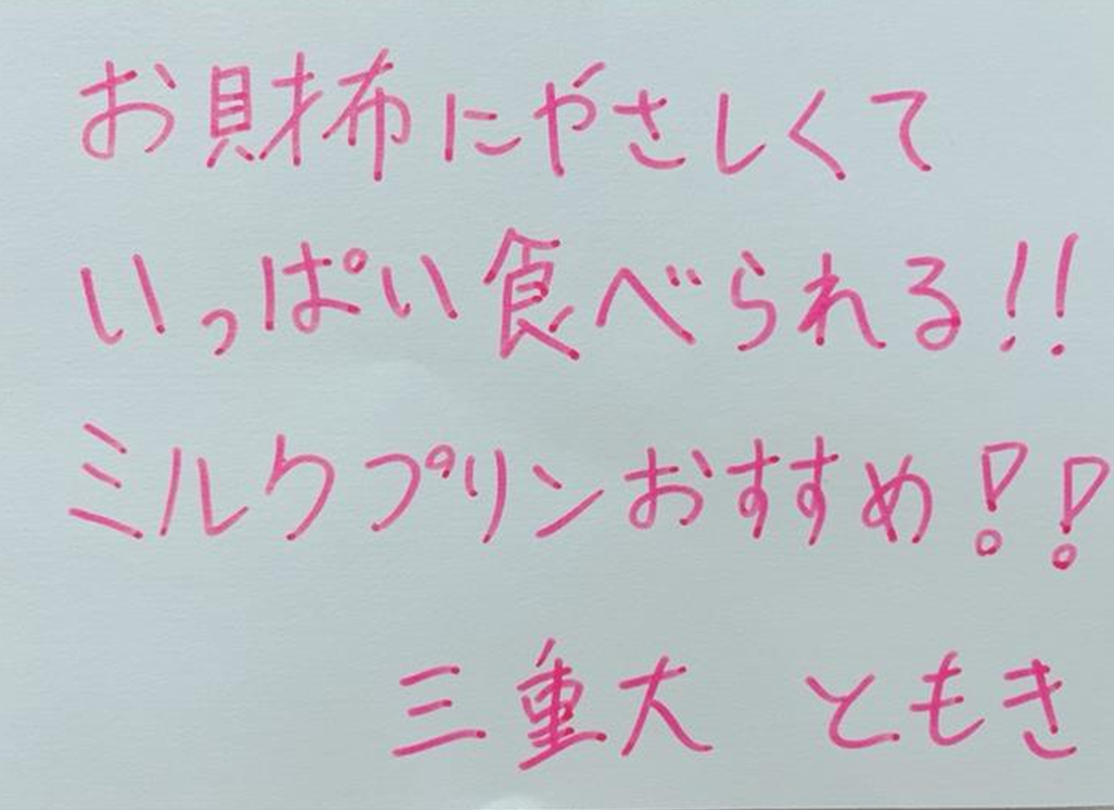 お財布にやさしくて
いっぱい食べられる!!
ミルクプリンおすすめ!!
三重大 ともき